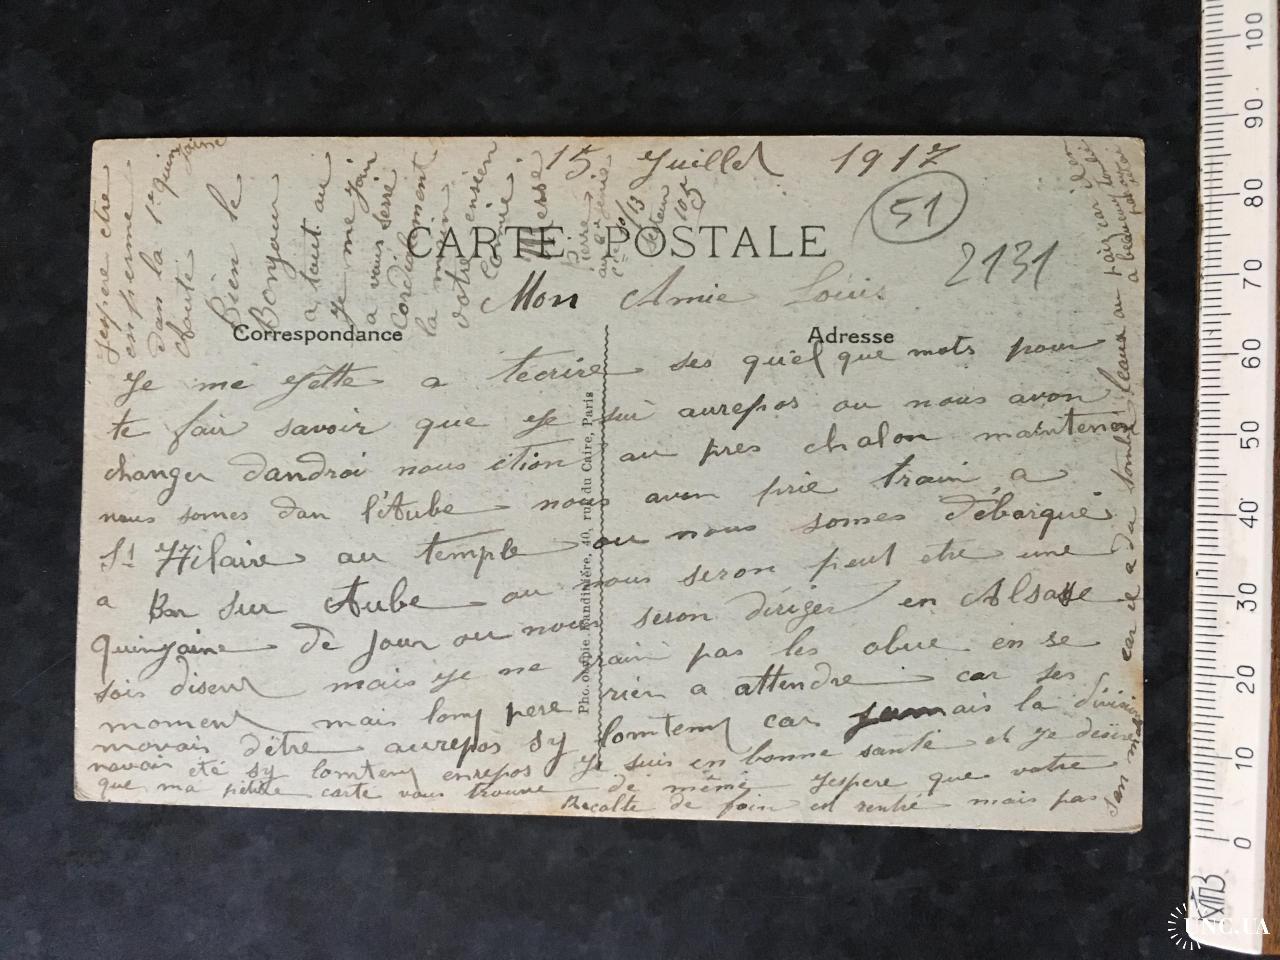 15 Juillet 1917
51
2131
CARTE POSTALE
Mon Amie Louis
Correspondance
Adresse
Je me gette a tecrire ses quelque mots pour
te fair savoir que je sui aurepos ou nous avon
changer dandroi nous étion au pres chalon maintenes
nous somes dan l'Aube nous avon prie train, a
St Hilaire au temple ou nous somes Débarqué
a Bar sur Aube ou nous seron peut etre une
quinzaine de jour ou nous seron diriger en Alsasse
sois disent mais je ne rain pas les obue en se
moment mais lomp pere rien a attendre car ses
movais dêtre aurepos sy lomtemp car jamais la division
navais été sy lomtemp enrepos Je suis en bonne santé et je désire
que ma petite carte vous trouve de même Jespere que votre
Recolte de foin et rentré mais pas
san mal car il a du tomber leaux au
a beaucoup
Jespere etre
enpermie
dans la 1e quin
zaine
daouté
Bien le
Bonjour
a tout au
je me join
a vous serre
Cordialement
la main
votre ensien
Comie
Messe
Pierre
au génie
Cie 13
secteur 105
Phototypie Baudinière, 40, rue du Caire, Paris
100
90
80
70
60
50
40
30
20
10
0
UNC.UA